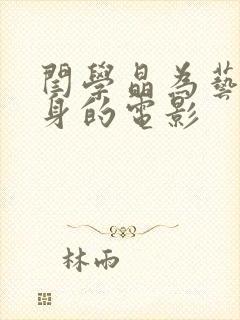 閏學晶為藝
身的電影
林雨